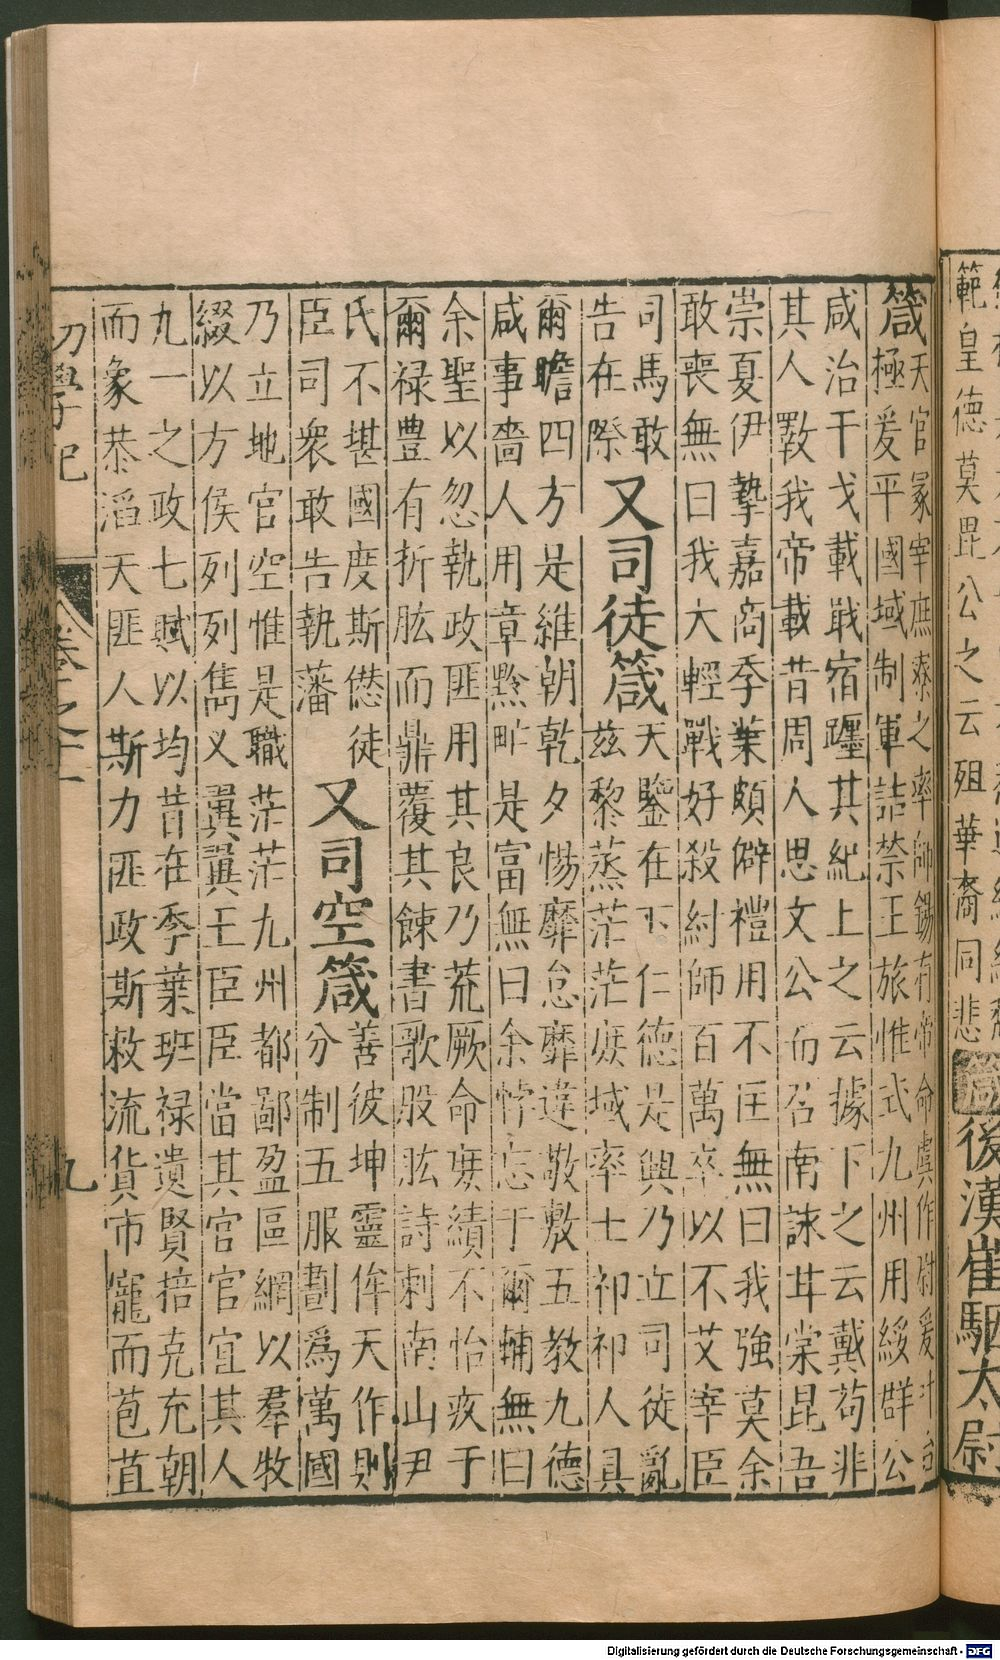 範皇德莫毘公之云殂華裔同悲
箴後漢崔駰太尉
箴
天官冢宰庶寮之率師錫有帝命虞作尉爰叶台
極爰平國域制軍詰禁王旅惟式九州用綏群公
咸治干戈載戢宿躔其紀上之云據下之云戴苟非
其人斁我帝載昔周人思文公而召南詠甘棠昆吾
崇夏伊摯嘉商季葉頗僻禮用不匡無曰我強莫余
敢喪無曰我大輕戰好殺紂師百萬卒以不艾宰臣
司馬敢
告在際
又司徒箴
天鑒在下仁德是興乃立司徒亂
茲黎蒸茫茫庶域率土祁祁人具
爾瞻四方是維朝乾夕惕靡怠靡違敬敷五教九德
咸事嗇人用章黔甿是富無曰余悖忘于爾輔無曰
余聖以忽執政匪用其良乃荒厥命庶績不怡疚于
爾祿豊有折肱而鼎覆其餗書歌股肱詩刺南山尹
氏不堪國度斯僁徒
臣司衆敢告執藩
又司空箴
善彼坤靈侔天作則
分制五服劃爲萬國
乃立地官空惟是職茫茫九州都鄙盈區網以羣牧
綴以方侯列列雋乂翼翼王臣臣當其官官宜其人
九一之政七賦以均昔在季葉班祿遺賢掊克充朝
而象恭滔天匪人斯力匪政斯敕流貨市寵而苞苴
初學記
卷之十一
九
Digitalisierung gefördert durch die Deutsche Forschungsgemeinschaft - DFG